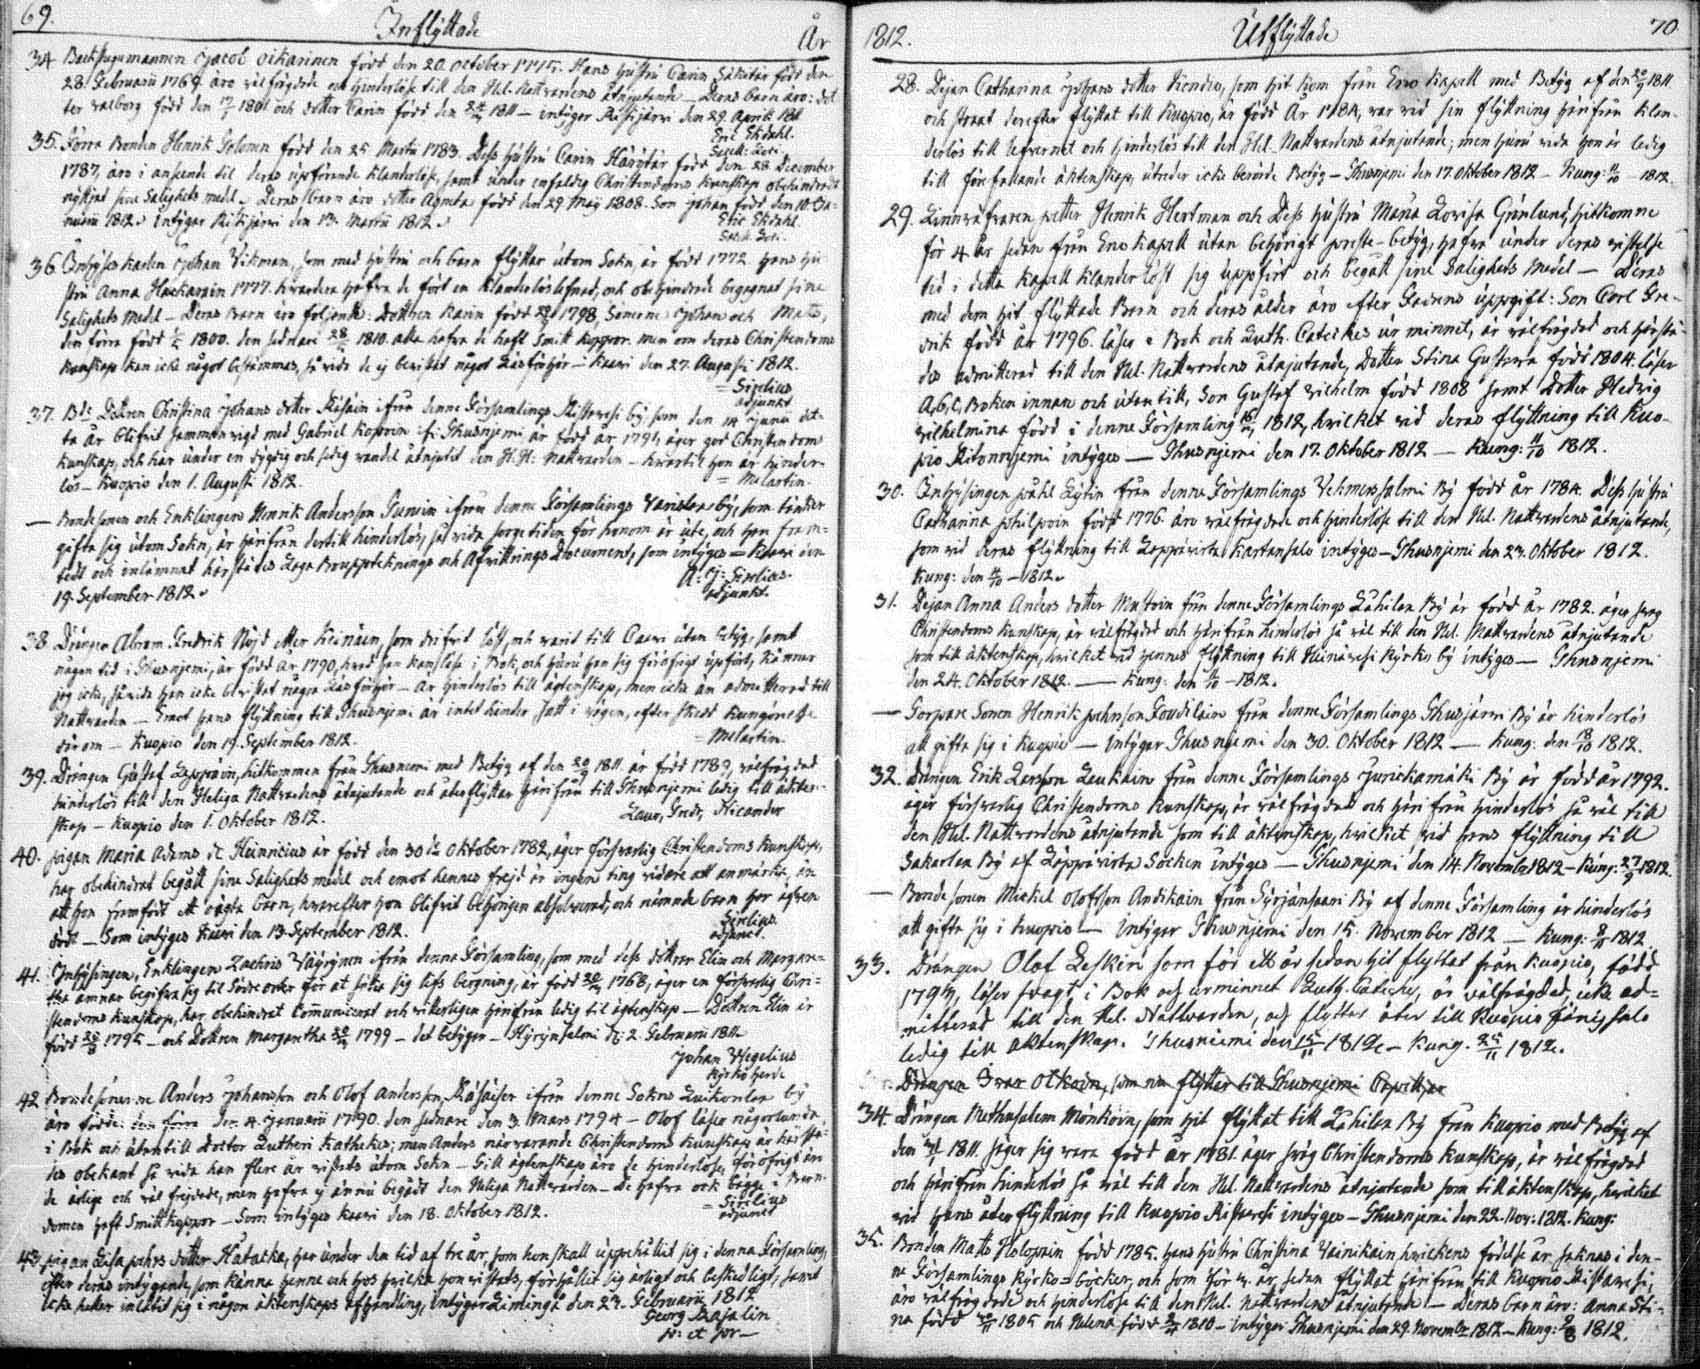 69. Inflyttade År
34 Backstugumannen Jacob Oikarinen född den 20. October 1775. Hans hustru Carin född den
28. Februarii 1769 äro välfrägdade och hinderlöse till den Hel. Nattvardens åtnjutande – Deras barn äro: dot
ter Walborg född den 1801 och dotter Carin född den 1811 – intÿgar den 29. April
Eric Ekdahl.
35. Förra Bonden Henrik född den 25 Martii 1783. Dess hustru Carin född den 28 December
1787, äro i anseende til deras upförande klanderlöse, samt under enfaldig Christendoms kunskap obehindrade
nyttjat sina Salighets medel. Deras barn äro dotter Agneta född den 29 Maÿ 1808. Son Johan född den 10
1812. intÿgar den 13. Martii 1812.
Eric Ekdahl.
36. Johan Wikman, som med hustru och barn flyttar utom Sokn, är född 1772 hans hu
stru Anna 1777. hvardera hafva de fört en klanderlös lefnad, och obehindrade begagnat sine
Salighets Medel – Deras Barn äro följande: Dottren Karin född 1798, Sönerne Johan och Mats,
den förra född 1800. den sednare 1810. alla hafva de haft Smitt koppor. men om deras Christendoms
kunskap kan icke något bestämmas, så vida de ej bevistat något Läsförhör – Kaavi den 27. Augusti 1812.
= Sirelius
adjunct
37. Dottren Christina Johans dotter ifrån denne Församlings by, som den 14 Junii det
ta år blifvit sammanvigd med Gabriel är född år 1791, äger god Christendoms
kunskap, och har under en dygdig och sedig vandel åtnjutit den H. H. Nattvarden – hvartil hon är hinder-
lös – Kuopio den 1. Augusti 1812.
= Melartin.
— Bondesonen och Enklingen Henrik Andersson ifrån denne Församlings by, som tänker
gifta sig utom Sokn, är härifrån dertill hinderlös, så vida sorgetiden för honom är ute, och han fram-
tedt och inlämnat Laga Bouppteknings och Afvittrings Document, som intÿges – Kaavi den
19. September 1812.
A. J. Sirelius.
adjunct.
38. Drängen Abram Fredrik Nöjd eller Keinäin, som drifvit löst, och varit till Caavi utan betyg, samt
någon tid i Thusnjemi, är född år 1790, hvad han kan läsa i Bok, och huru han sig föröfrigt upfört, känner
jag icke, så vida han icke bevistat några Läsförhör – är hinderlös till ägtenskap, men icke än admitterad till
Nattvarden – Emot hans flyttning till Thusnjemi är intet hinder satt i vägen, efter skedd kungörelse
derom – Kuopio den 19. September 1812.
= Melartin
39. Drängen Gustaf hitkommen från Thusnemi med Betÿg af den 1811 är född 1789, välfrägdad
hinderlös till den Heliga Nattvardens åtnjutande och åter flyttar härifrån till Thusnjemi ledig till äkten-
skap – Kuopio den 1. Oktober 1812.
Laur. Fredr. Aicander
40. pigan Maria Adams dr Heinricius är född den 30de Oktober 1782, äger försvarlig Christendoms kunskap,
har obehindrat begått sine Salighets medel och emot hennes frejd är ingen ting vidare att anmärka, än
att hon framfödt ett oägta barn, hvarefter hon blifvit behörigen absolverad, och nämnde barn har äfven
dödt – Som intÿges Kaavi den 13 September 1812.
Sirelius
adjunct.
41. Inhÿsingen, Enklingen Zachris Väÿrÿnen ifrån denna Församling, som med dess döttrar Elin och Margare-
tha ämnar begifva sig til för at söka sig lifs bergning, är född 1768, äger en försvarlig Chri-
stendoms kunskap, har obehindrat Communicerat och vitterligen härifrån ledig til ägtenskap – Dottren Elin är
född 1795 – och Dottren Margaretha 1799 – det betÿgar – Hyrynsalmi d: 2. Februarii 1811
Johan Wegelius
Kyrkoherde
42 Bondesönerne Anders Johansson och Olof Andersson ifrån denne Sokns by
äro födde: den 4 Januarii 1790. den sednare den 3. Mars 1794 – Olof läser någorlunda
i Bok och utantill doctor Lutheri Kathekes; men Anders närvarande Christendoms kunskap är härstä-
des obekant så vida han flere år vistats utom Sokn – Till ägtenskap äro de hinderlöse, för öfrigt än
de ärlige och välfrejdade, men hafva ej ännu begådt den Heliga Nattvarden – De hafva ock begge i Barn-
domen haft Smittkoppor – Som intÿges Kaavi den 18. Oktober 1812.
= Sirelius
adjunct
43. pigan Lisa pahrs dotter Hatakka, har under den tid af tre år, som hon skall uppehållit sig i denna Församling,
efter deras intÿgande, som känna henne och hos hvilka hon vistats, förhållit sig ärligt och beskedligt, samt
icke heller inlåtit sig i någon äktenskaps afhandling, intÿgar Limingå den 23. Februarii 1812
Georg
1812. Utflÿttade 70.
28. Pigan Catharina Johans dotter som hit kom från Eno Kapell med Betÿg af den 1811.
och straxt derefter flÿttat till Kuopio, är född År 1784, var vid sin flyttning härifrån klan-
derlös till Lefvernet och hinderlös till den Hel. Nattvardens åtnjutande; men huru vida hon är ledig
till förefallande äktenskap, utreder icke berörde Betÿg – Thusnjemi den 17 Oktober 1812 – Kung: – 1812.
29. Linnväfvaren petter Henrik Hertman och Dess hustru Maria Lovisa Grönlund, hitkomne
för 4 år sedan från Eno Kapell utan behörigt preste-betÿg, hafva under deras vistelse
tid i detta Kapell klanderlöst sig uppfört och begått sine Salighets Medel – Deras
med dem hit flÿttade Barn och deras ålder äro efter Fadrens uppgift: Son Carl Fre-
drik född år 1796. läser i Bok och Luth. Cateches ur minnet, är välfrägdad och härstä-
des admitterad till den Hel. Nattvardens åtnjutande, Dotter Stina Gustava född 1804. läser
A, b, c, Boken innan och utan till, Son Gustaf Wilhelm född 1808 samt Dotter Hedvig
Wilhelmina född i denne Församling 1812, hvilket vid deras flyttning till Kuo-
pio Ritoniemi intÿges — Thusnjemi den 17. Oktober 1812 – Kung: 11/10 1812.
30. Inhÿsingen påhl Lÿtin från denne Församlings Vehmersalmi Bÿ född år 1784. Dess hustru
Catharina född 1776. äro välfrägdade och hinderlöse till den Hel. Nattvardens åtnjutande,
som vid deras flÿttning till Leppävirta Kartansalo intÿges – Thusnjemi den 23. Oktober 1812.
Kung: den – 1812.
31. Pigan Anna Anders dotter Mustoin från denne Församlings Lähilax Bÿ är född år 1782. äger svag
Christendoms kunskap, är välfrägdad och härifrån hinderlös så väl till den Hel. Nattvardens åtnjutande
som till äktenskap, hvilket vid hennes flyttning till Heinävesi Kÿrko bÿ intÿges — Thusnjemi
den 24. Oktober 1812. — Kung: den – 1812.
— Torpare Sonen Henrik från denne Församlings Thusjärvi Bÿ är hinderlös
att gifta sig i Kuopio — Intÿgar Thusnjemi den 30. Oktober 1812 — Kung: den 18/10 1812.
32. Drängen Erik Larsson Laukain från denne Församlings Jurickamäki Bÿ är född år 1792.
äger försvarlig Christendoms kunskap, är välfrägdad och härifrån hinderlös så väl till
den Hel. Nattvardens åtnjutande som till äktenskap, hvilket vid hans flyttning till
Sakarlax Bÿ af Leppävirta Socken intÿges — Thusnjemi den 14. November 1812 – Kung: 1812.
— Bonde sonen Mickel Olofsson Andikain från Bÿ af denne Församling är hinderlös
att gifta sig i Kuopio – Intÿgar Thusnjemi den 15. November 1812 — Kung: 8/11 1812.
33. Drängen Olof Leskin som för ett år sedan hit flyttat från Kuopio, född
1794, läser svagt i Bok och ur minnet Luth. Cateches, är välfrägdad, icke ad-
mitterad till den Hel. Nattvarden, och flyttar åter till Kuopio
ledig till äktenskap. Thusniemi den 15/11 1812 – Kung. 1812.
Drängen Ivar Otkoin, som nu flytter till Thusnjemi Capell, är
34. Drängen Methusalem Monkoin, som hit flÿttat till Lähilax Bÿ från Kuopio med Betÿg af
den 1811. säger sig vara född år 1781. äger svag Christendoms kunskap, är välfrägdad
och härifrån hinderlös så väl till den Hel. Nattvardens åtnjutande som till äktenskap, hvilket
vid hans åter flÿttning till Kuopio intÿges – Thusnjemi den 22. Nov: 1812. Kung:
35. Bonden Matts Holopain född 1785. hans hustru Christina Vainikain hvilkens födelse år saknas i den-
ne Församlings kÿrko-böcker, och som för år sedan flÿttat härifrån till Kuopio
äro välfrägdade och hinderlöse till den Hel. Nattvardens åtnjutande — Deras barn äro: Anna Sti-
na född 1805 och Helena född 1810 – intÿgar Thusnjemi den 29. November 1812 – Kung: 1812.